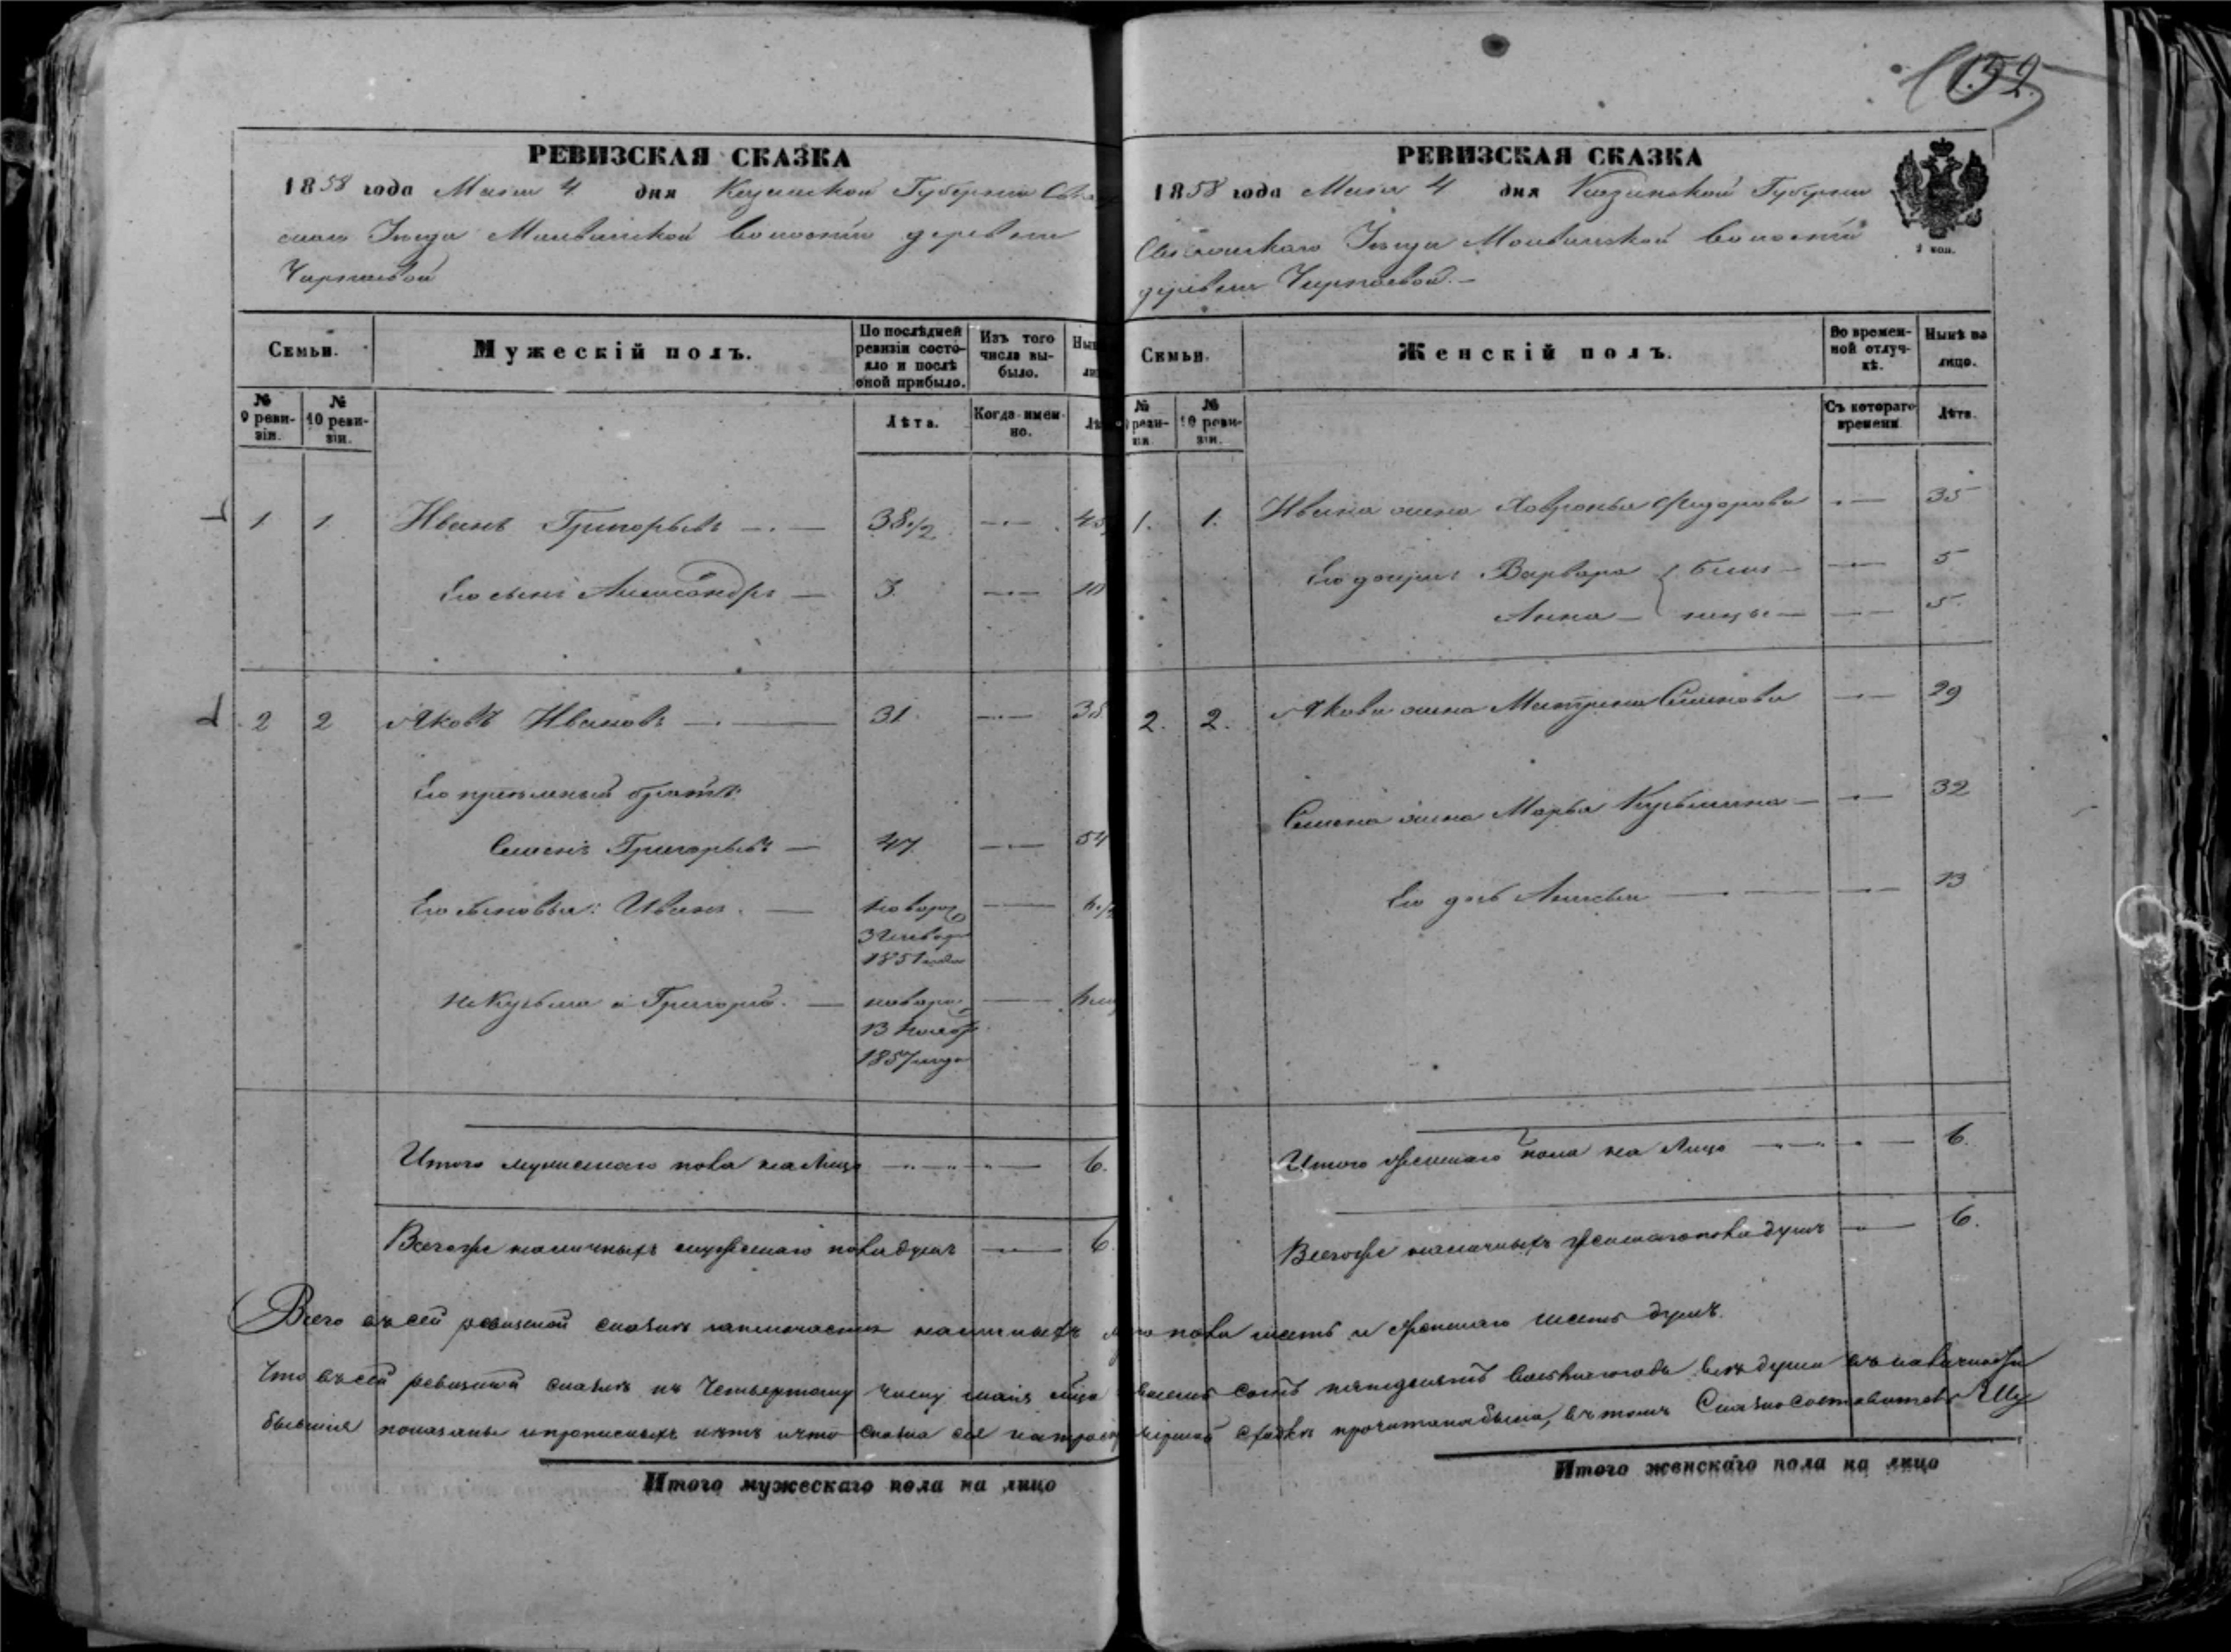 152
РЕВИЗСКАЯ СКАЗКА
1858 года Маия 4 дня Казанской Губернии Свія
скаго Уезда волости деревни
РЕВИЗСКАЯ СКАЗКА
1858 года Маия 4 дня Казанской Губернии
Свіяжскаго Уезда волости
деревни
2 коп.
Семьи.
Мужескій полъ.
По послѣдней ревизіи состояло и послѣ оной прибыло.
Изъ того числа выбыло.
№ 9 ревизіи.
№ 10 ревизіи.
Лѣта.
Когда именно.
1 1 Иванъ Григорьевъ 38 1/2
Его сынъ Александръ 3. 10
2 2 Яковъ Ивановъ 31 38
Его пріемный братъ
Семенъ Григорьевъ 47 54
Его сыновья: Иванъ новорож
3 Января
1851 года
Кузьма и Григорій новорож
13 Нояб
1857 года
Итого мужескаго пола на лицо 6.
Всего же наличныхъ мужескаго пола душъ 6
Семьи.
Женскій полъ.
Во временной отлучкѣ.
Нынѣ на лицо.
№ ревизіи
№ 10 ревизіи.
Съ котораго времени
Лѣта.
1. 1. Ивана жена Ховронья Федорова 35
Его дочери Варвара близ 5
Анна нецы 5
2. 2. Якова жена Матрена Семенова 29
Семена жена Марья Кузьмина 32
Его дочь 13
Итого женскаго пола на лицо 6.
Всего же наличныхъ женскаго пола душъ 6.
Всего въ сей ревизской сказкѣ заключается наличныхъ пола шесть и женскаго шесть душъ.
Что въ сей ревизской сказкѣ къ четвертому числу маия восемь сотъ пятьдесятъ всѣ души въ наличности
бывшія показаны и прописныхъ нѣтъ и что сказка сія прочитана была, въ томъ
Итого мужескаго пола на лицо
Итого женскаго пола на лицо